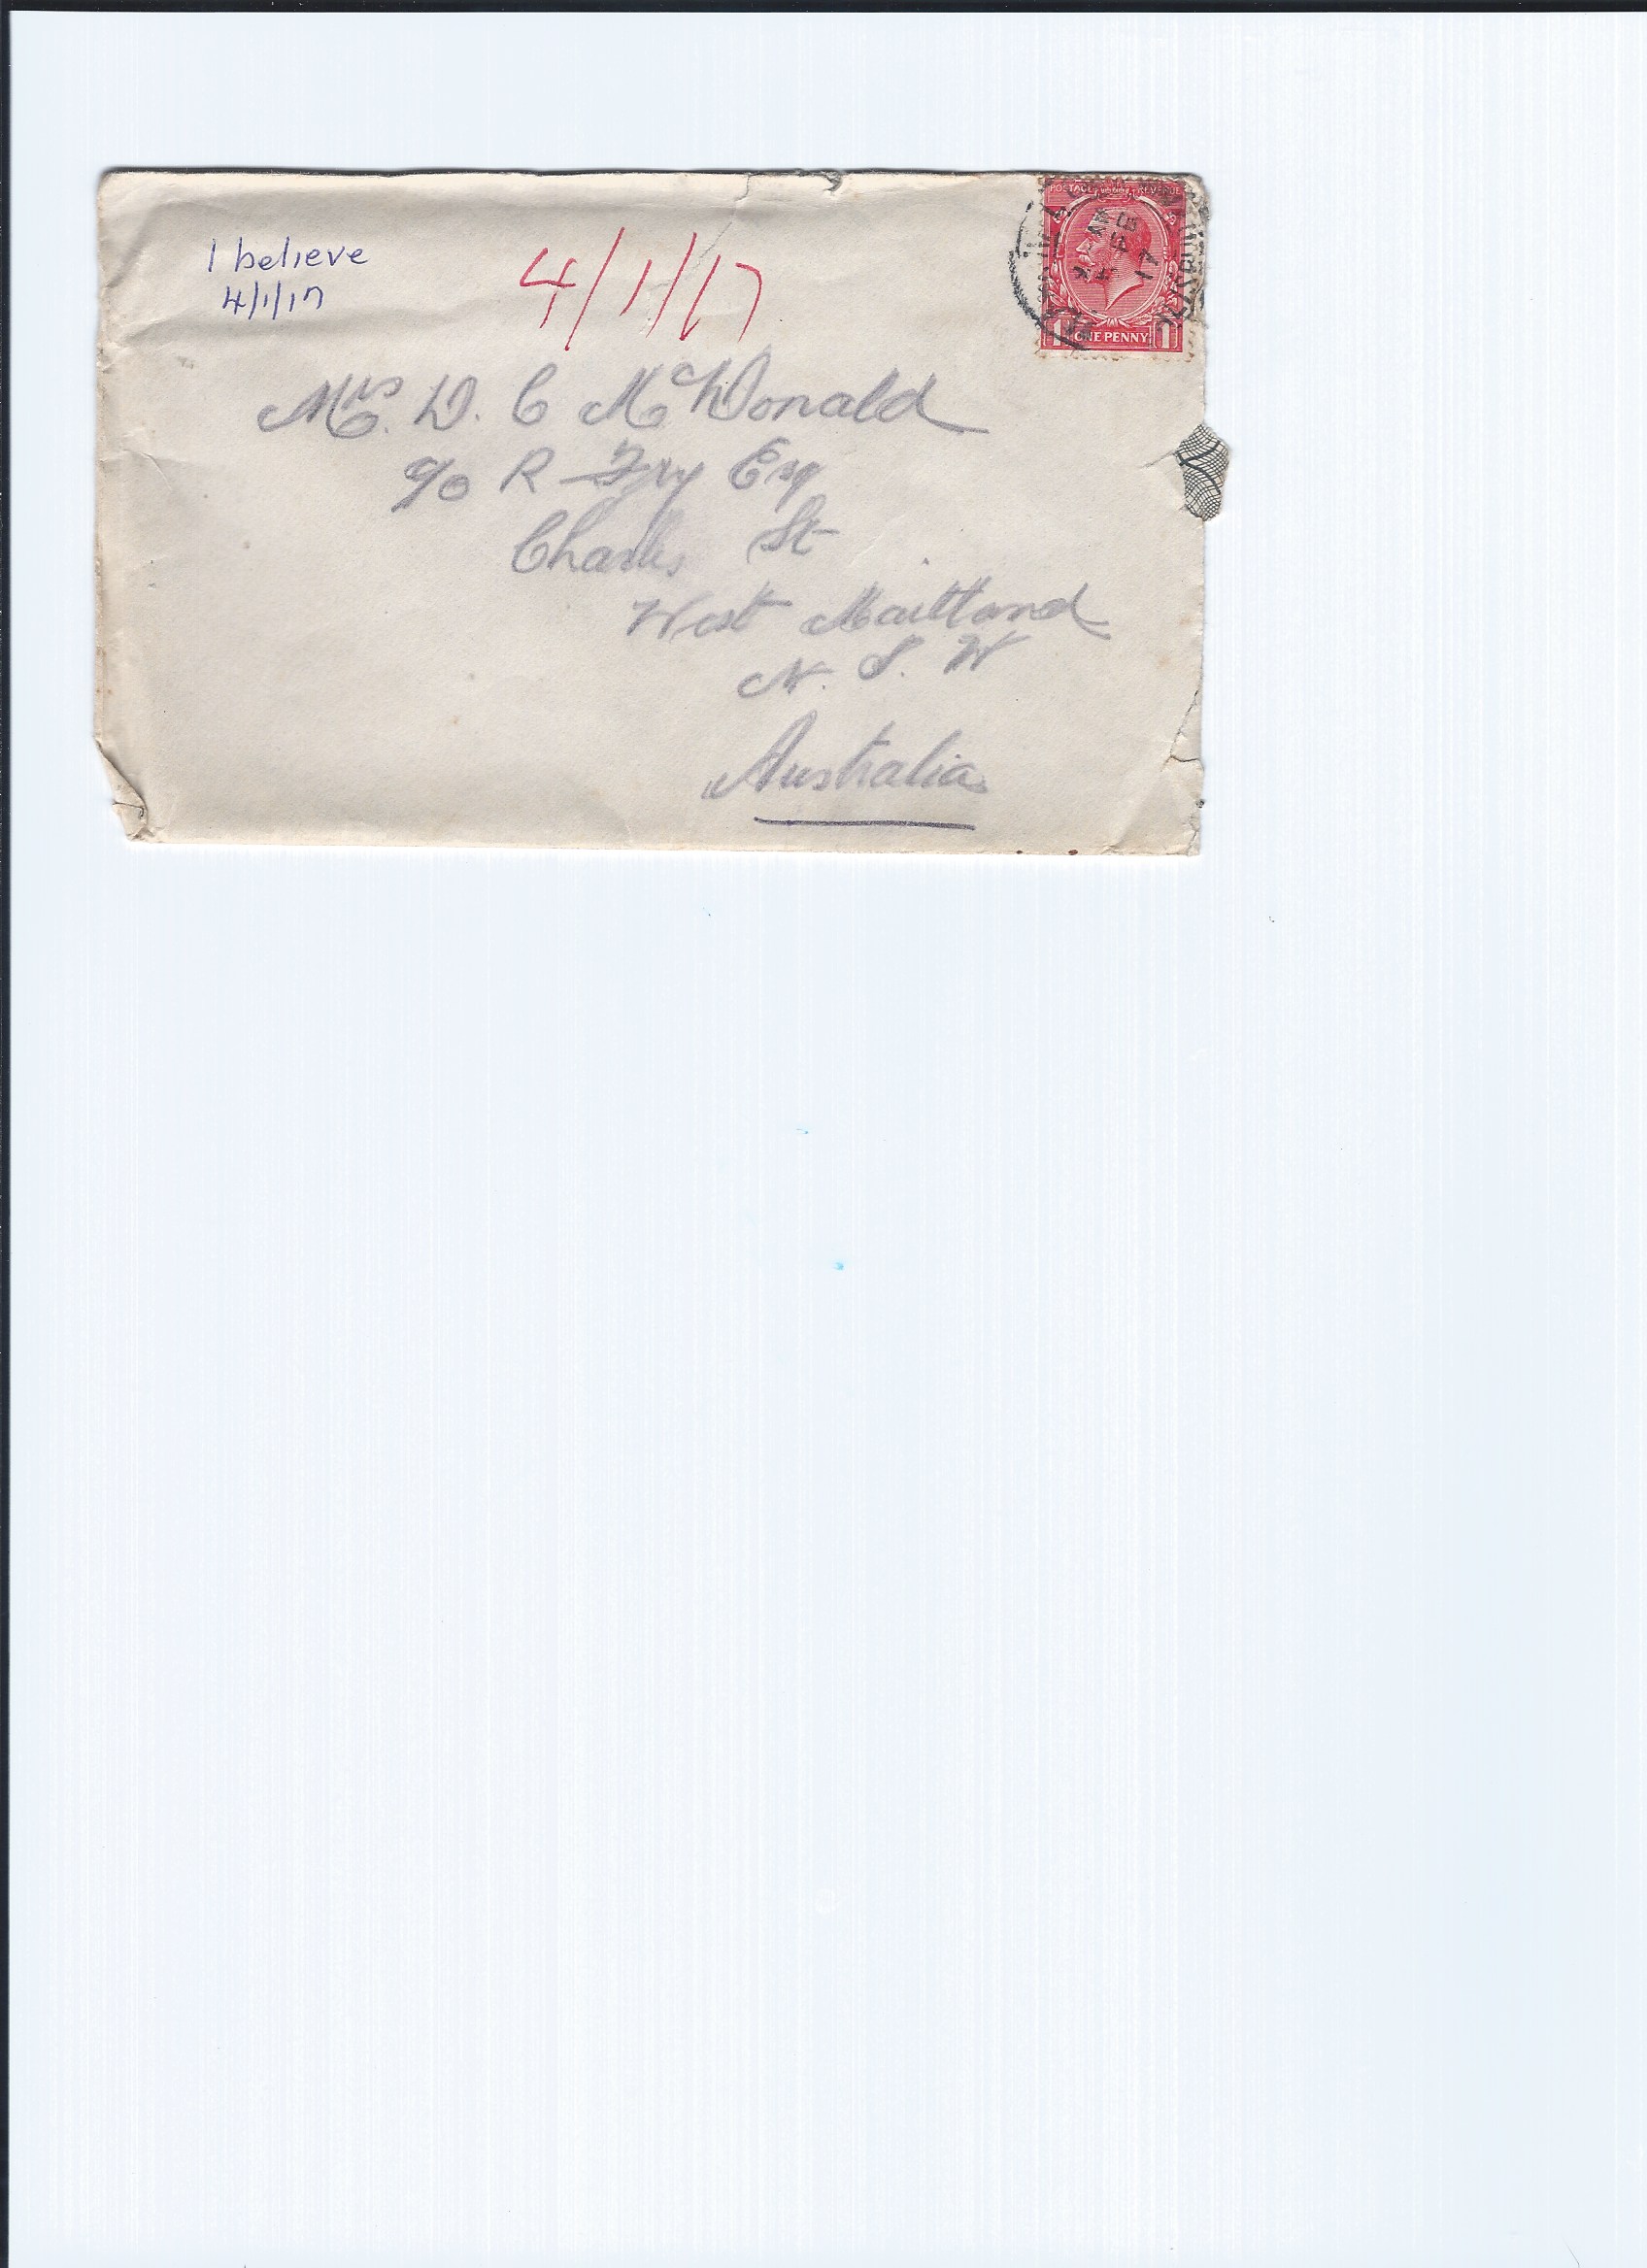 I believe
4/1/17
4/1/17
POSTAGE REVENUE
5 FE
17
1 ONE PENNY 1
Mrs. D. C McDonald
c/o R Fry Esq
Charles St
West Maitland
N. S. W
Australia